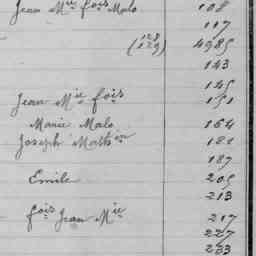 Jean Mie fois Malo 108
117
(128
129) 4985
143
145
Jean Mie fois 151
Marie Malo 164
Joseph Mathin 181
187
Emile 205
213
fois Jean Mie 217
227
233